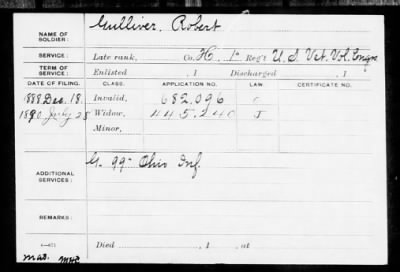 NAME OF SOLDIER: Gulliver, Robert
SERVICE: Late rank, Co. H, 1st Reg't U.S. Vet. Vol. Engrs
TERM OF SERVICE: Enlisted , 1 Discharged , 1
DATE OF FILING. CLASS. APPLICATION NO. LAW. CERTIFICATE NO.
1888 Dec. 18. Invalid, 682.096
1890 July 28 Widow, 445.240 J
Minor,
ADDITIONAL SERVICES: G. 99" Ohio Inf.
REMARKS:
Died , 1 , at